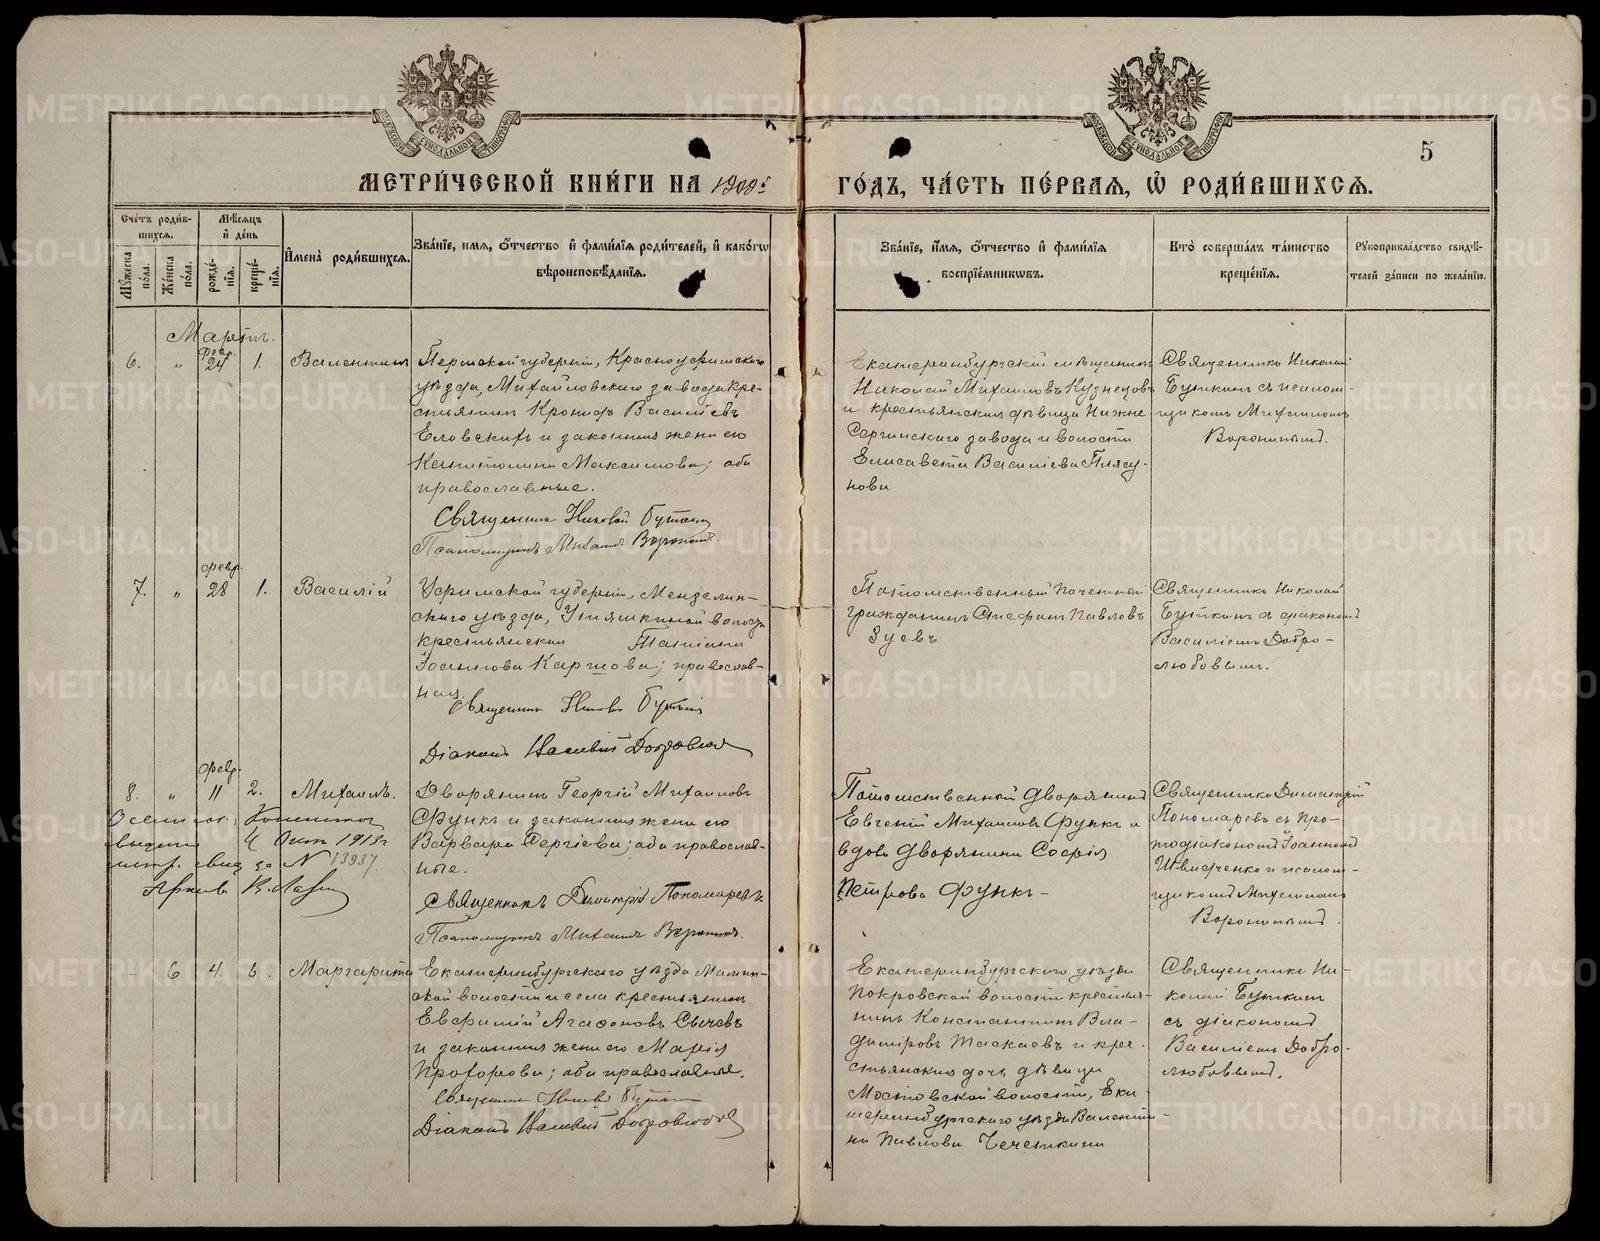 МЕТРИЧЕСКОЙ КНИГИ НА 1908й
ГОДЪ, ЧАСТЬ ПЕРВАЯ, Ѡ РОДИВШИХСЯ.
5
Счетъ родив-
шихся.
Мѣсяцъ
и день
Мужеска пола.
Женска пола.
рожде-
нія.
креще-
нія.
Имена родившихся.
Званіе, имя, отчество и фамилія родителей, и какогѡ
вѣроисповѣданія.
Званіе, имя, отчество и фамилія
воспріемниковъ.
Кто совершалъ таинство
крещенія.
Рукоприкладство свидѣ-
телей записи по желанію.
Мартъ.
6. " Фев. 24 1. Валентинъ
Пермской губерніи, Красноуфимскаго
уѣзда, Михайловскаго завода кре-
стьянинъ Кронидъ Василіевъ
Еловскихъ и законная жена его
Капитолина Максимова; оба
православные.
Священникъ Николай Буткинъ
Псаломщикъ Михаилъ Воронинъ.
Екатеринбургскій мѣщанинъ
Николай Михаиловъ Кузнецовъ
и крестьянская дѣвица Нижне
Сергинскаго завода и волости
Елисавета Василіева Плясу-
нова
Священникъ Николай
Буткинъ съ псалом-
щикомъ Михаиломъ
Воронинымъ.
7. " февр. 28 1. Василій
Уфимской губерніи, Мензелин-
скаго уѣзда, волости
крестьянская Татіана
Іосифова Каргиова; православ-
ная.
Священникъ Николай Буткинъ
Діаконъ Василій Добролюбовъ
Потомственный почетный
гражданинъ Стефанъ Павловъ
Зуевъ
Священникъ Николай
Буткинъ съ діакономъ
Василіемъ Добро-
любовымъ.
8. " февр. 11 2. Михаилъ.
4 Окт 1913 г
метр. свид за № 13937
Дворянинъ Георгій Михаиловъ
Функъ и законная жена его
Варвара Сергіева; оба православ-
ные.
Священникъ Димитрій Пономаревъ.
Псаломщикъ Михаилъ Воронинъ.
Потомственный дворянинъ
Евгеній Михаиловъ Функъ и
вдова дворянина Софія
Петрова Функъ-
Священникъ Димитрій
Пономаревъ съ про-
тодіакономъ Іоанномъ
Швидченко и псалом-
щикомъ Михаиломъ
Воронинымъ.
- 6 4. 6. Маргарита
Екатеринбургскаго уѣзда Мамин-
ской волости и села крестьянинъ
Евфимій Агафоновъ Сычевъ
и законная жена его Марія
Прохорова; оба православные.
Священникъ Николай Буткинъ
Діаконъ Василій Добролюбовъ
Екатеринбургскаго уѣзда
Покровской волости крестья-
нинъ Константинъ Вла-
диміровъ Таскаевъ и кре-
стьянская дочь дѣвица
Мостовской волости, Ека-
теринбургскаго уѣзда Валенти-
на Павлова Чечеткина
Священникъ Ни-
колай Буткинъ
съ діакономъ
Василіемъ Добро-
любовымъ.
METRIKI.GASO-URAL.RU